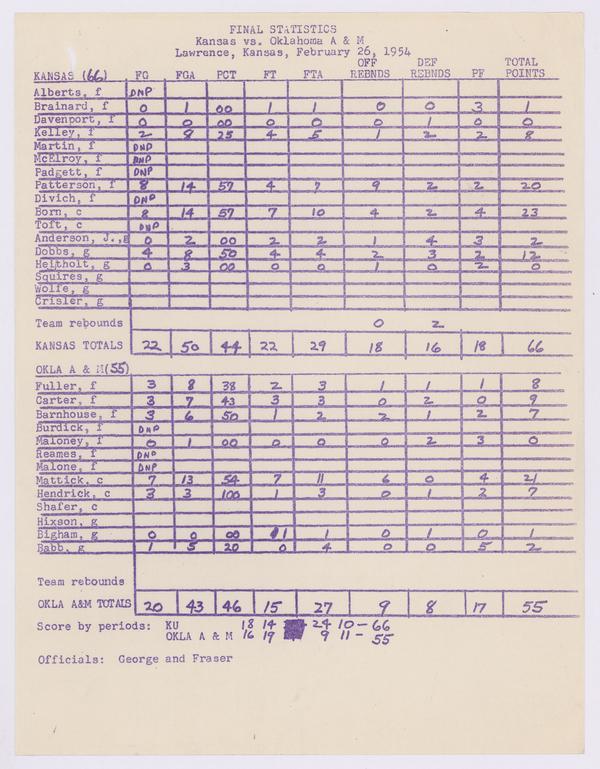 FINAL STATISTICS
Kansas vs. Oklahoma A & M
Lawrence, Kansas, February 26, 1954
OFF DEF TOTAL
KANSAS (66) FG FGA PCT FT FTA REBNDS REBNDS PF POINTS
Alberts, f DNP
Brainard, f 0 1 00 1 1 0 0 3 1
Davenport, f 0 0 00 0 0 0 1 0 0
Kelley, f 2 8 25 4 5 1 2 2 8
Martin, f DNP
McElroy, f DNP
Padgett, f DNP
Patterson, f 8 14 57 4 7 9 2 2 20
Divich, f DNP
Born, c 8 14 57 7 10 4 2 4 23
Toft, c DNP
Anderson, J.,g 0 2 00 2 2 1 4 3 2
Dobbs, g 4 8 50 4 4 2 3 2 12
Heitholt, g 0 3 00 0 0 1 0 2 0
Squires, g
Wolfe, g
Crisler, g
Team rebounds 0 2
KANSAS TOTALS 22 50 44 22 29 18 16 18 66
OKLA A & M(55)
Fuller, f 3 8 38 2 3 1 1 1 8
Carter, f 3 7 43 3 3 0 2 0 9
Barnhouse, f 3 6 50 1 2 2 1 2 7
Burdick, f DNP
Maloney, f 0 1 00 0 0 0 2 3 0
Reames, f DNP
Malone, f DNP
Mattick, c 7 13 54 7 11 6 0 4 21
Hendrick, c 3 3 100 1 3 0 1 2 7
Shafer, c
Hixson, g
Bigham, g 0 0 00 1 1 0 1 0 1
Babb, g 1 5 20 0 4 0 0 5 2
Team rebounds
OKLA A&M TOTALS 20 43 46 15 27 9 8 17 55
Score by periods: KU 18 14 24 10 - 66
OKLA A & M 16 19 9 11 - 55
Officials: George and Fraser